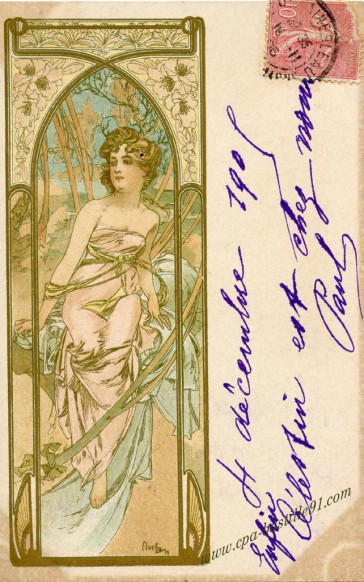 4 décembre 1905
Enfin
Célestin est chez nous
Paul
Mucha
www.cpa-bastille91.com
10